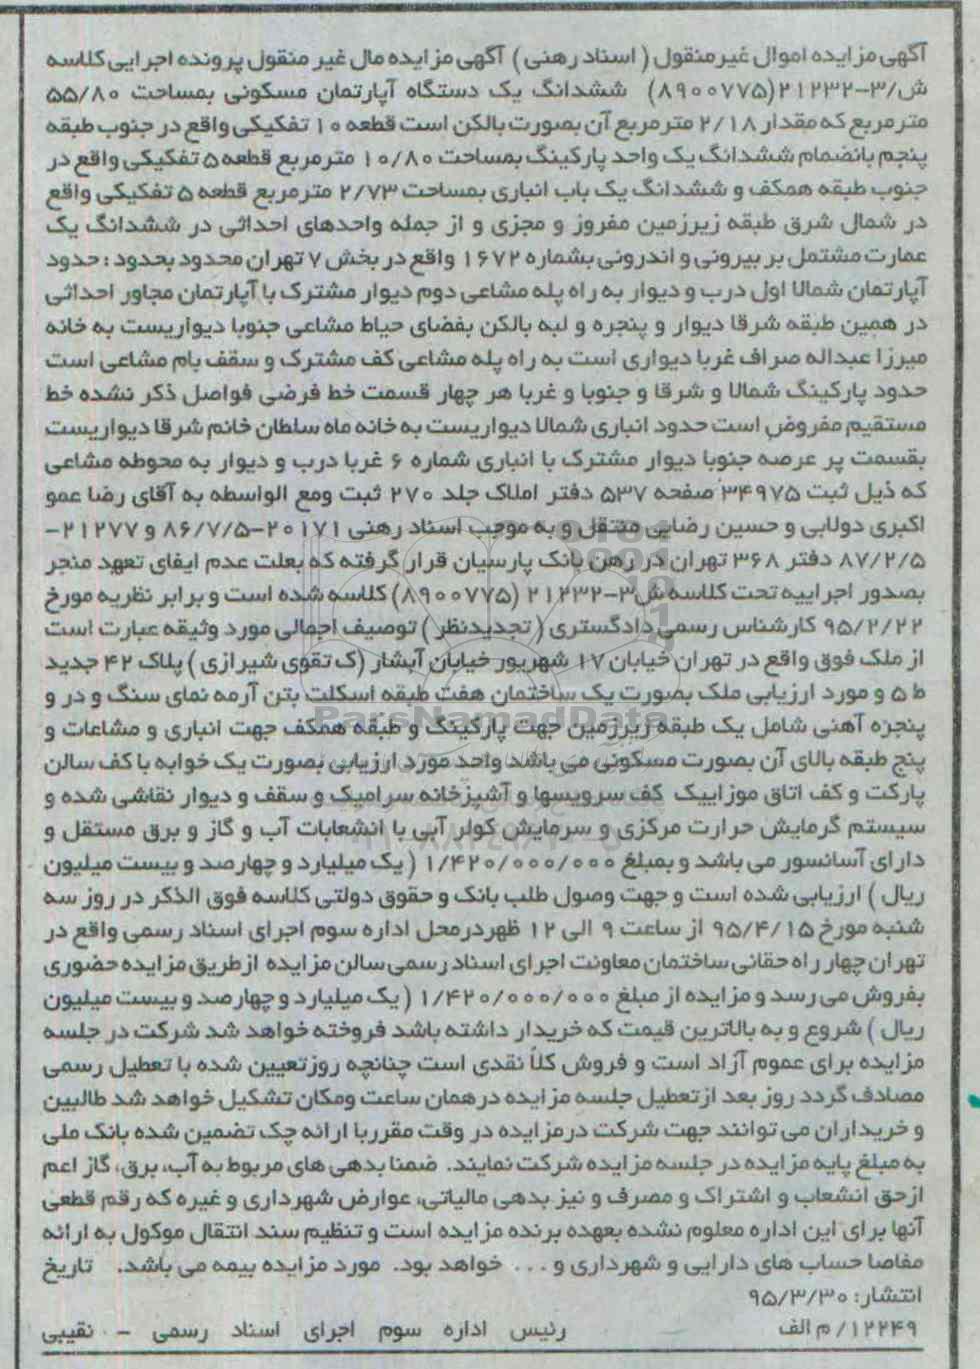 آگهی مزایده اموال غیرمنقول ( اسناد رهنی ) آگهی مزایده مال غیر منقول پرونده اجرایی کلاسه
ش/۳-۲۱۲۳۲(۸۹۰۰۷۷۵) ششدانگ یک دستگاه آپارتمان مسکونی بمساحت ۵۵/۸۰
مترمربع که مقدار ۲/۱۸ مترمربع آن بصورت بالکن است قطعه ۱۰ تفکیکی واقع در جنوب طبقه
پنجم بانضمام ششدانگ یک واحد پارکینگ بمساحت ۱۰/۸۰ مترمربع قطعه ۵ تفکیکی واقع در
جنوب طبقه همکف و ششدانگ یک باب انباری بمساحت ۲/۷۳ مترمربع قطعه ۵ تفکیکی واقع
در شمال شرق طبقه زیرزمین مفروز و مجزی و از جمله واحدهای احداثی در ششدانگ یک
عمارت مشتمل بر بیرونی و اندرونی بشماره ۱۶۷۲ واقع در بخش ۷ تهران محدود بحدود : حدود
آپارتمان شمالا اول درب و دیوار به راه پله مشاعی دوم دیوار مشترک با آپارتمان مجاور احداثی
در همین طبقه شرقا دیوار و پنجره و لبه بالکن بفضای حیاط مشاعی جنوبا دیواریست به خانه
میرزا عبداله صراف غربا دیواری است به راه پله مشاعی کف مشترک و سقف بام مشاعی است
حدود پارکینگ شمالا و شرقا و جنوبا و غربا هر چهار قسمت خط فرضی فواصل ذکر نشده خط
مستقیم مفروض است حدود انباری شمالا دیواریست به خانه ماه سلطان خانم شرقا دیواریست
بقسمت پر عرصه جنوبا دیوار مشترک با انباری شماره ۶ غربا درب و دیوار به محوطه مشاعی
که ذیل ثبت ۳۴۹۷۵ صفحه ۵۳۷ دفتر املاک جلد ۲۷۰ ثبت ومع الواسطه به آقای رضا عمو
اکبری دولابی و حسین رضایی منتقل و به موجب اسناد رهنی ۲۰۱۷۱-۸۶/۷/۵ و ۲۱۲۷۷-
۸۷/۲/۵ دفتر ۳۶۸ تهران در رهن بانک پارسیان قرار گرفته که بعلت عدم ایفای تعهد منجر
بصدور اجراییه تحت کلاسه ش۳-۲۱۲۳۲ (۸۹۰۰۷۷۵) کلاسه شده است و برابر نظریه مورخ
۹۵/۲/۲۲ کارشناس رسمی دادگستری ( تجدیدنظر ) توصیف اجمالی مورد وثیقه عبارت است
از ملک فوق واقع در تهران خیابان ۱۷ شهریور خیابان آبشار (ک تقوی شیرازی ) پلاک ۴۲ جدید
ط ۵ و مورد ارزیابی ملک بصورت یک ساختمان هفت طبقه اسکلت بتن آرمه نمای سنگ و در و
پنجره آهنی شامل یک طبقه زیرزمین جهت پارکینگ و طبقه همکف جهت انباری و مشاعات و
پنج طبقه بالای آن بصورت مسکونی می باشد واحد مورد ارزیابی بصورت یک خوابه با کف سالن
پارکت و کف اتاق موزاییک کف سرویسها و آشپزخانه سرامیک و سقف و دیوار نقاشی شده و
سیستم گرمایش حرارت مرکزی و سرمایش کولر آبی با انشعابات آب و گاز و برق مستقل و
دارای آسانسور می باشد و بمبلغ ۱/۴۲۰/۰۰۰/۰۰۰ ( یک میلیارد و چهارصد و بیست میلیون
ریال ) ارزیابی شده است و جهت وصول طلب بانک و حقوق دولتی کلاسه فوق الذکر در روز سه
شنبه مورخ ۹۵/۴/۱۵ از ساعت ۹ الی ۱۲ ظهردرمحل اداره سوم اجرای اسناد رسمی واقع در
تهران چهار راه حقانی ساختمان معاونت اجرای اسناد رسمی سالن مزایده ازطریق مزایده حضوری
بفروش می رسد و مزایده از مبلغ ۱/۴۲۰/۰۰۰/۰۰۰ ( یک میلیارد و چهارصد و بیست میلیون
ریال ) شروع و به بالاترین قیمت که خریدار داشته باشد فروخته خواهد شد شرکت در جلسه
مزایده برای عموم آزاد است و فروش کلاً نقدی است چنانچه روزتعیین شده با تعطیل رسمی
مصادف گردد روز بعد ازتعطیل جلسه مزایده درهمان ساعت ومکان تشکیل خواهد شد طالبین
و خریداران می توانند جهت شرکت درمزایده در وقت مقرربا ارائه چک تضمین شده بانک ملی
به مبلغ پایه مزایده در جلسه مزایده شرکت نمایند. ضمنا بدهی های مربوط به آب، برق، گاز اعم
ازحق انشعاب و اشتراک و مصرف و نیز بدهی مالیاتی، عوارض شهرداری و غیره که رقم قطعی
آنها برای این اداره معلوم نشده بعهده برنده مزایده است و تنظیم سند انتقال موکول به ارائه
مفاصا حساب های دارایی و شهرداری و ... خواهد بود. مورد مزایده بیمه می باشد. تاریخ
انتشار: ۹۵/۳/۳۰
۱۲۲۴۹/ م الف رئیس اداره سوم اجرای اسناد رسمی - نقیبی
ParsNamadData